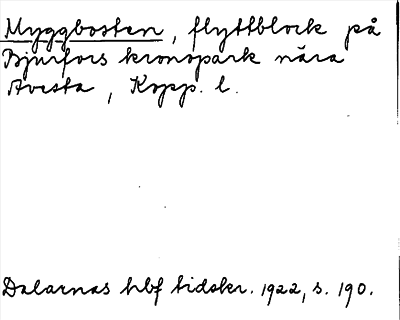 Myggbosten, flyttblock på
Bjurfors kronopark nära
Avesta, Kopp. l.
Dalarnas hbf tidskr. 1922, s. 190.